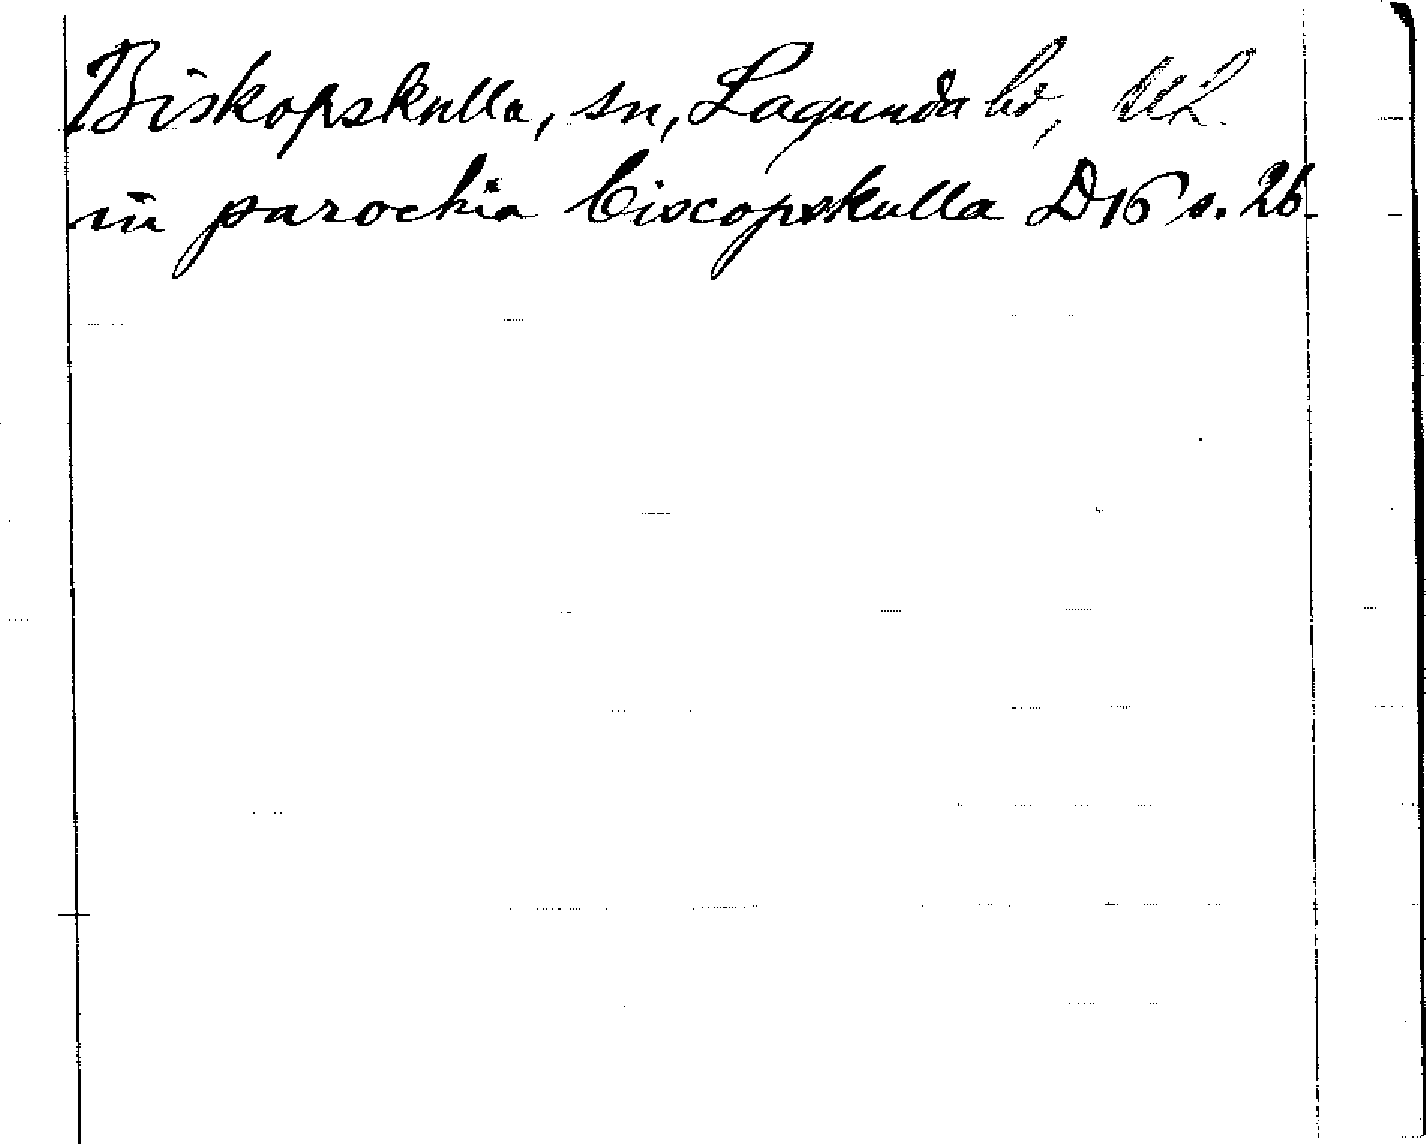 Biskopskulla, sn, Lagunda hd, Ul.
in parochia biscopskulla D 16 s. 26.